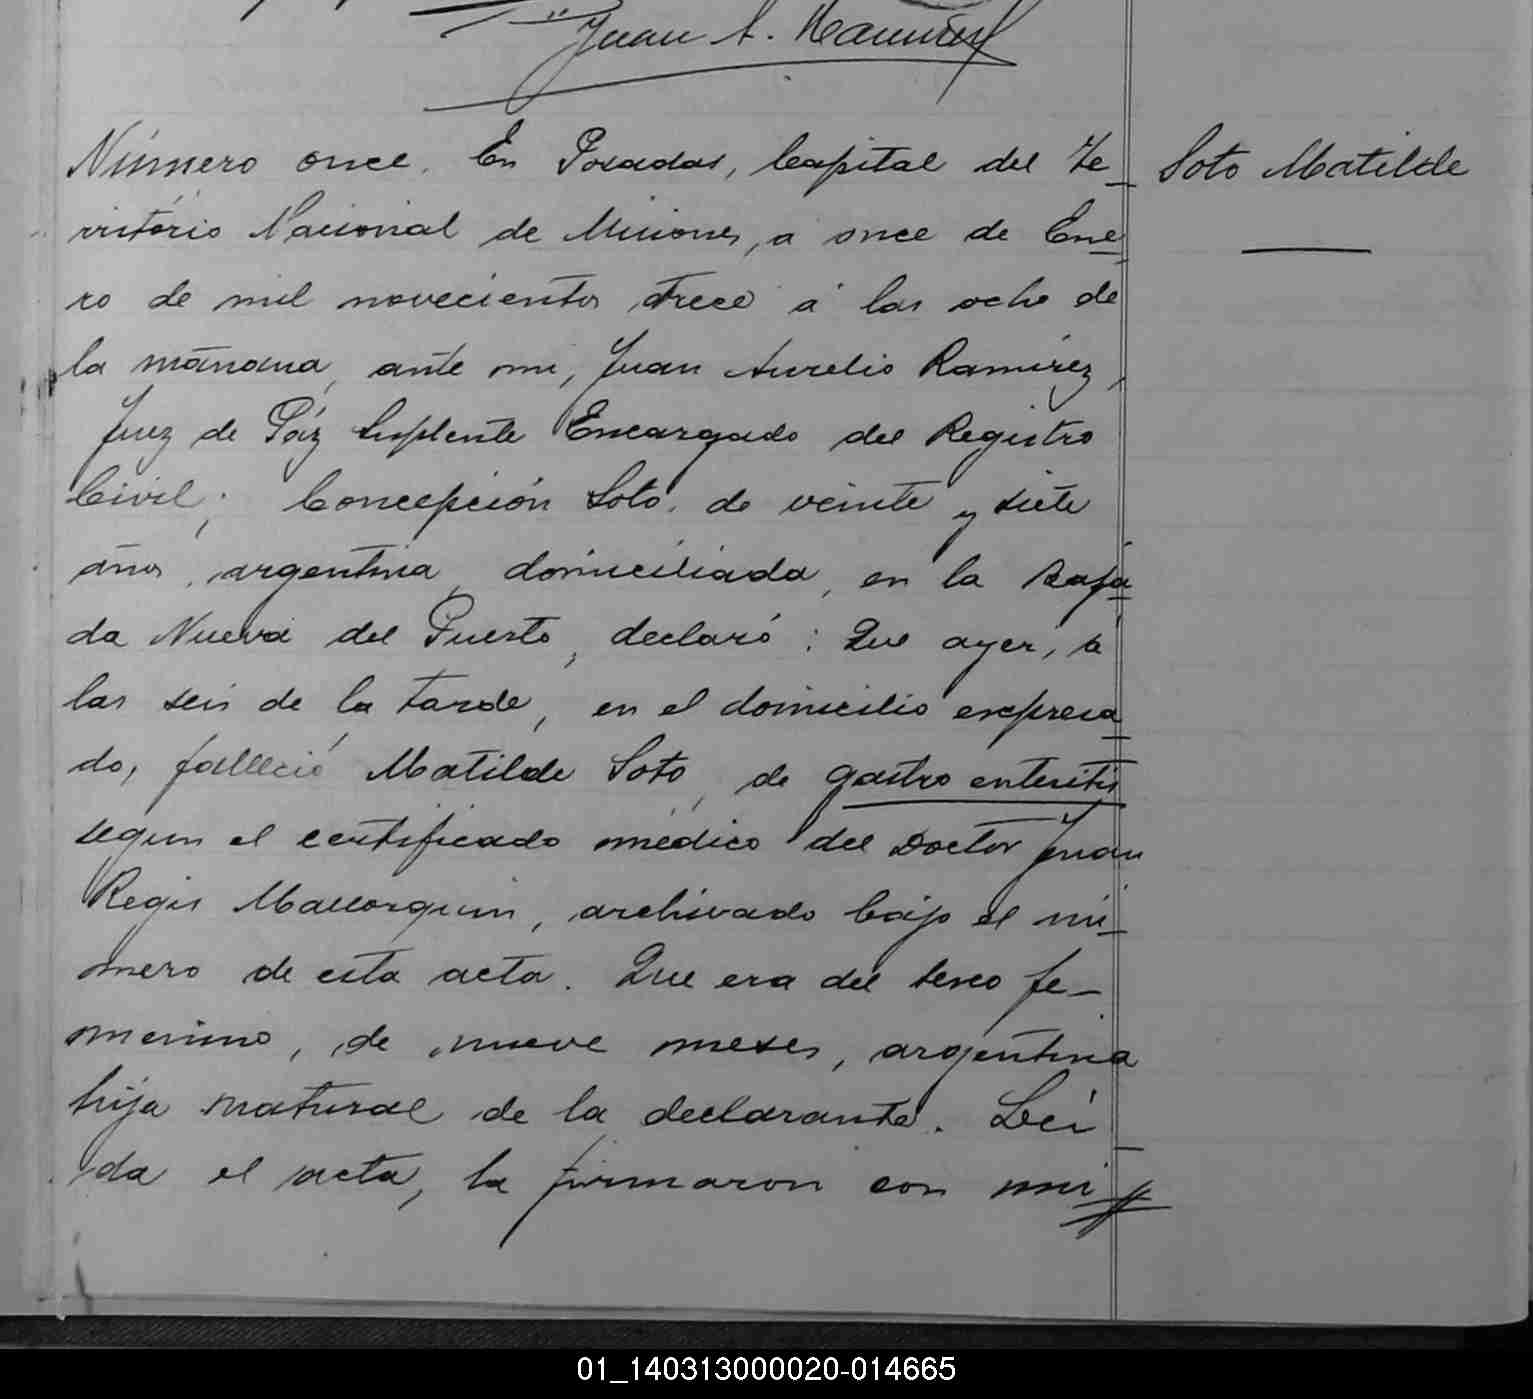 Juan A. Ramirez
Número once. En Posadas, Capital del Te- Soto Matilde
rritório Nacional de Misiones, a once de Ene
ro de mil novecientos trece á las ocho de
la mañana, ante mi, Juan Aurelio Ramírez,
Juez de Páz Suplente Encargado del Registro
Civil; Concepción Soto, de veinte y siete
años, argentina, domiciliada, en la Baja
da Nueva del Puerto, declaró: Que ayer, á
las seis de la tarde, en el domicilio expresa
do, falleció Matilde Soto, de gastro enteritis
segun el certificado médico del Doctor Juan
Regis Mallorquin, archivado bajo el nú-
mero de esta acta. Que era del sexo fe-
menino, de nueve meses, argentina
hija natural de la declarante. Leí-
da el acta, la firmaron con mi
01_140313000020-014665